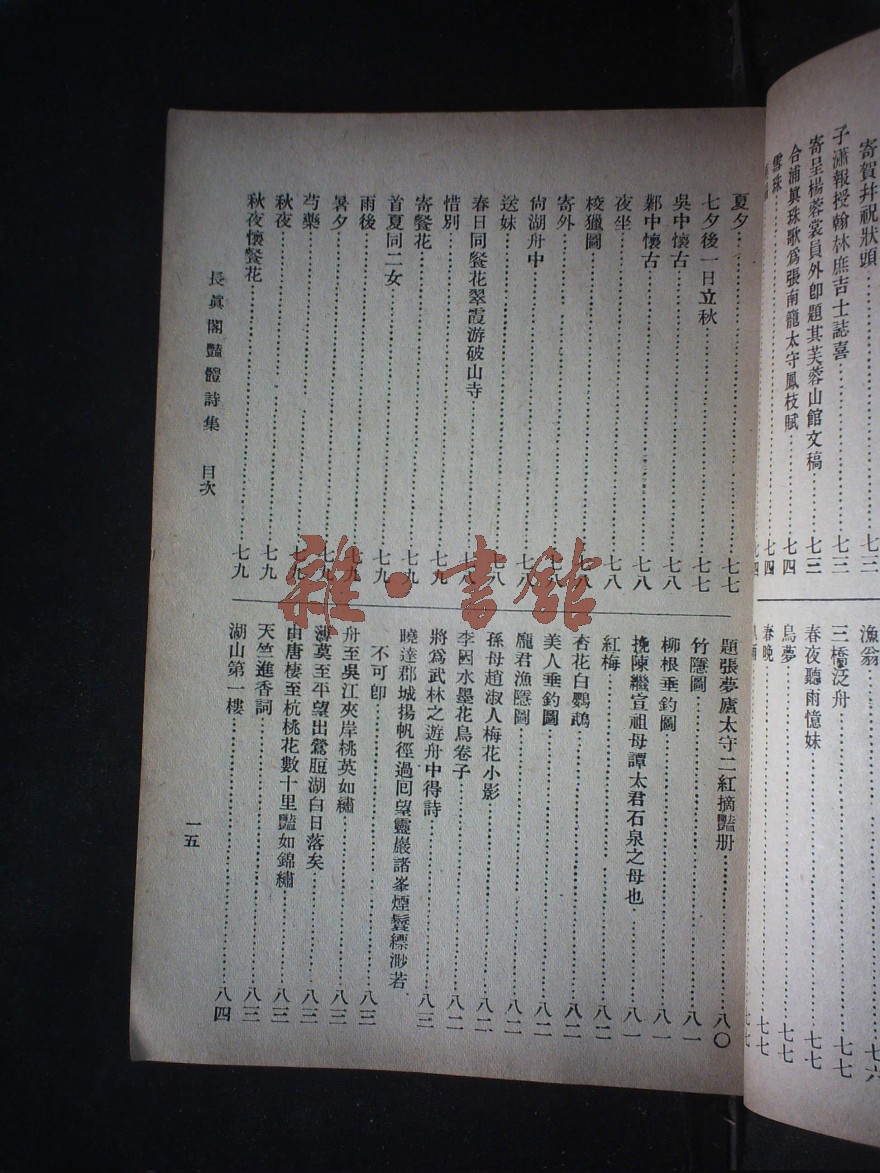 寄賀井祝狀頭……七三
子瀟報授翰林庶吉士誌喜……七三
寄呈楊蓉裳員外卽題其芙蓉山館文稿……七三
合浦眞珠歌爲張南龍太守鳳枝賦……七四
雪珠……七四
七四
漁翁……七六
三橋泛舟……七七
春夜聽雨憶妹……七七
鳥夢……七七
春晚……七七
七七
夏夕……七七
七夕後一日立秋……七七
吳中懷古……七八
鄴中懷古……七八
夜坐……七八
校獵圖……七八
寄外……七八
尙湖舟中……七八
送妹……七八
春日同餐花翠霞游破山寺……七八
惜別……七九
寄餐花……七九
首夏同二女……七九
雨後……七九
暑夕……七九
芍藥……七九
秋夜……七九
秋夜懷餐花……七九
題張夢廬太守二紅摘豔册……八〇
竹隱圖……八一
柳根垂釣圖……八一
挽陳繼宣祖母譚太君石泉之母也……八一
紅梅……八二
杏花白鸚鵡……八二
美人垂釣圖……八二
龐君漁隱圖……八二
孫母趙淑人梅花小影……八二
李因水墨花鳥卷子……八二
將爲武林之遊舟中得詩……八三
曉達郡城揚帆徑過囘望靈巖諸峯煙鬟縹渺若
不可卽……八三
舟至吳江夾岸桃英如繡……八三
薄莫至平望出鶯脰湖白日落矣……八三
由唐棲至杭桃花數十里豔如錦繡……八三
天竺進香詞……八三
湖山第一樓……八四
長眞閣豔體詩集 目次
一五
雜·書館